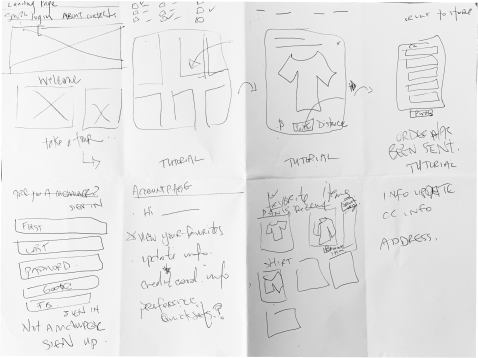 Landing Page
Login About Contact
Welcome
take a tour
TUTORIAL
$
Distance
TUTORIAL
TO STORE
CC
ORDER HAS
BEEN SENT.
TUTORIAL
Are you a member?
SIGN IN
FIRST
LAST
PASSWORD
Google
FB
SIGN IN
Not a member
SIGN UP.
Account PAGE
Hi
View your favorites
update info.
credit card info
preference
Favorite Items
SHIRT
INFO UPDATE
CC INFO
ADDRESS.